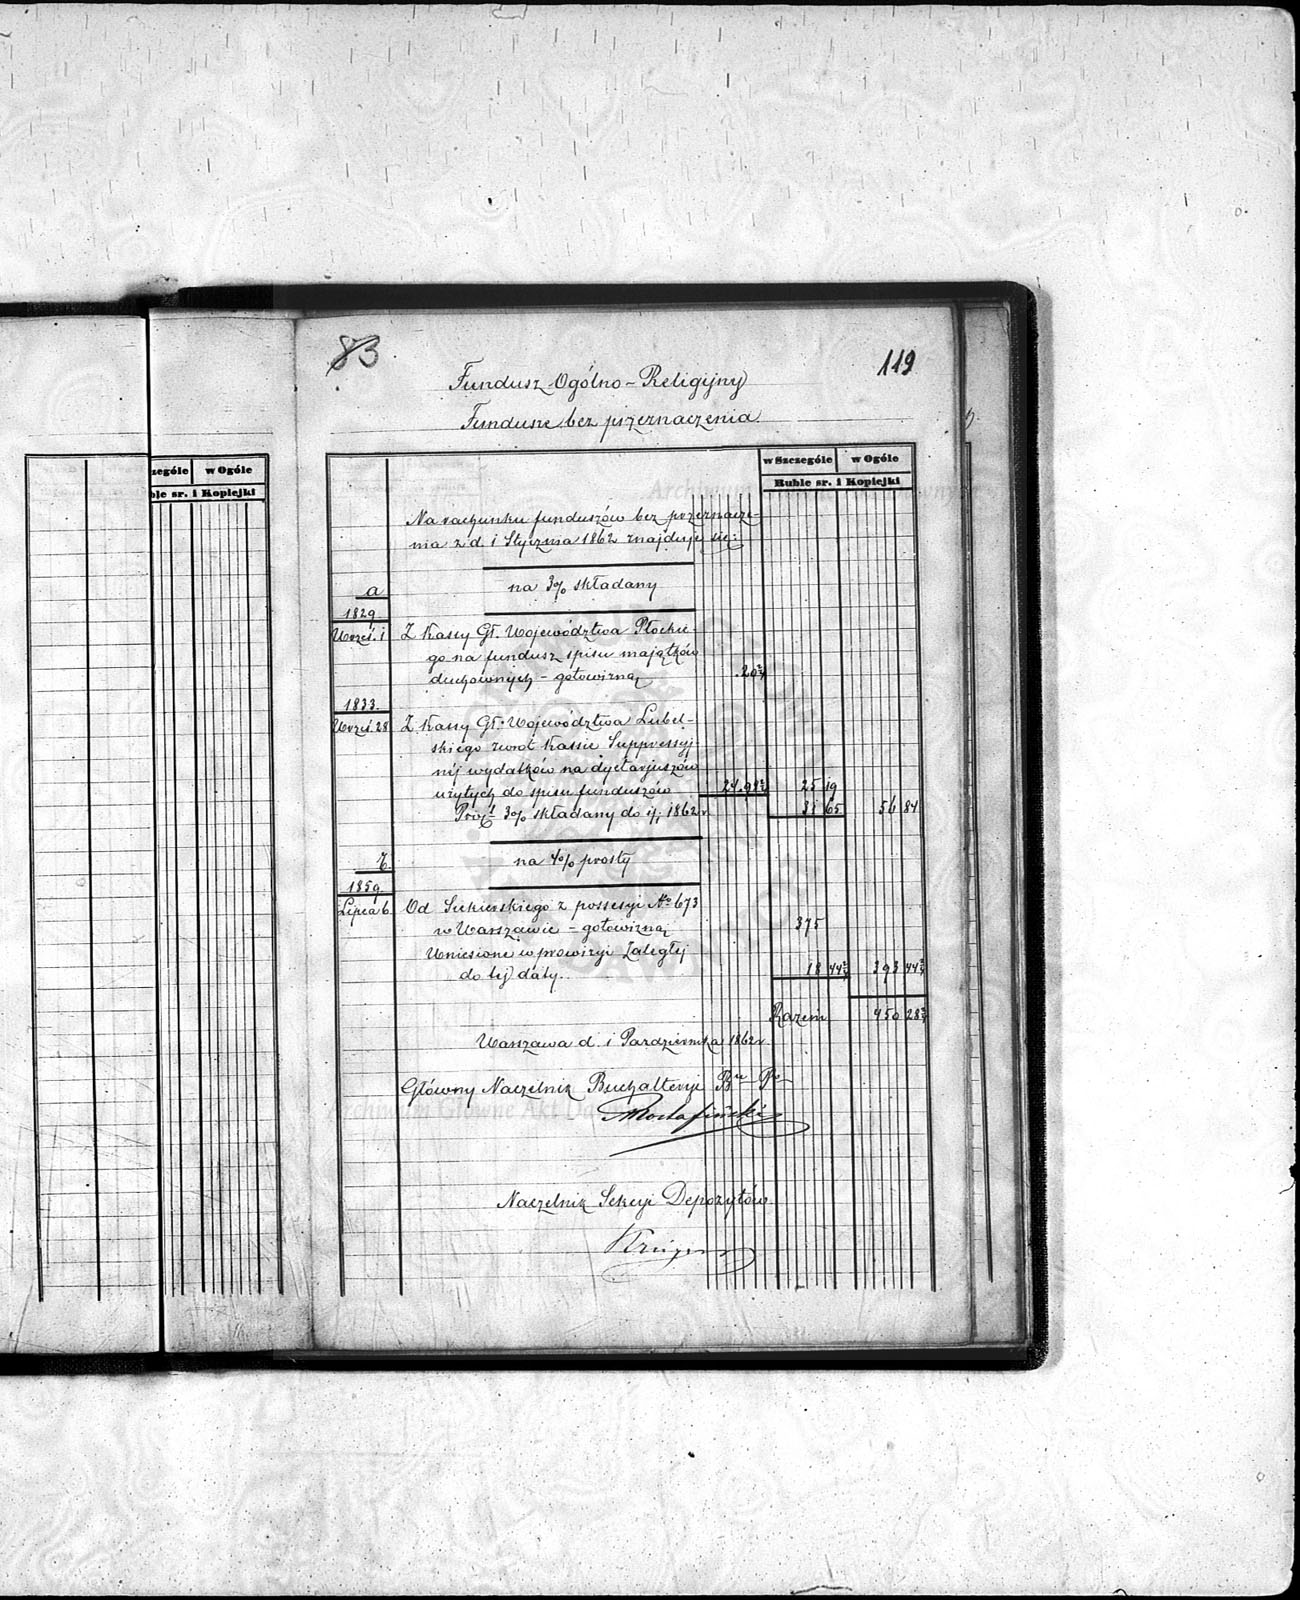 83
119
Fundusz Ogólno-Religijny
Fundusze bez przeznaczenia
zególe w Ogóle
ble sr. i Kopiejki
w Szczególe w Ogóle
Ruble sr. i Kopiejki
Na rachunku funduszów bez przeznacze-
nia z d. 1 Stycznia 1862 znajduje się:
a na 3% składany
1829.
Wrześ. 1 Z Kassy Gł. Województwa Płockie-
go na fundusz spisu majątków
duchownych - gotowizną .20¾
1833.
Wrześ. 28 Z Kassy Gł. Województwa Lubel-
skiego zwrot Kassie Suppressyj
nej wydatków na dyetarjuszów
użytych do spisu funduszów 24.98¼ 25 19
3% składany do 1862 r. 31 65 56 84
b. na 4% prosty
1859.
Lipca 6. Od z possesyi No 673
w Warszawie - gotowizną 375
Wniesione w prowizyi zaległej
do tej daty. 18 44¾ 393 44¾
Razem 450 28¾
Warszawa d. 1 Października 1862 r.
Główny Naczelnik Buchalteryi
Naczelnik Sekcyi Depozytów
Archiwum Główne Akt Dawnych